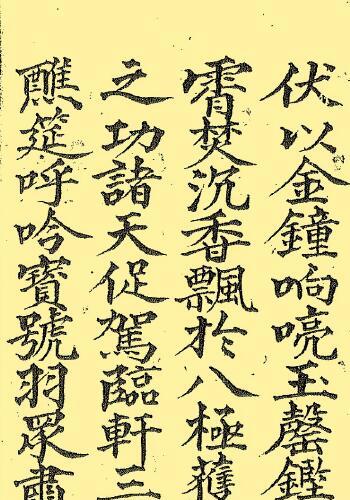 伏以金鐘响喨玉罄鏗
霄焚沉香飄於八極
之功諸天促駕臨軒三
醮筵呼吟寳號羽眾肅